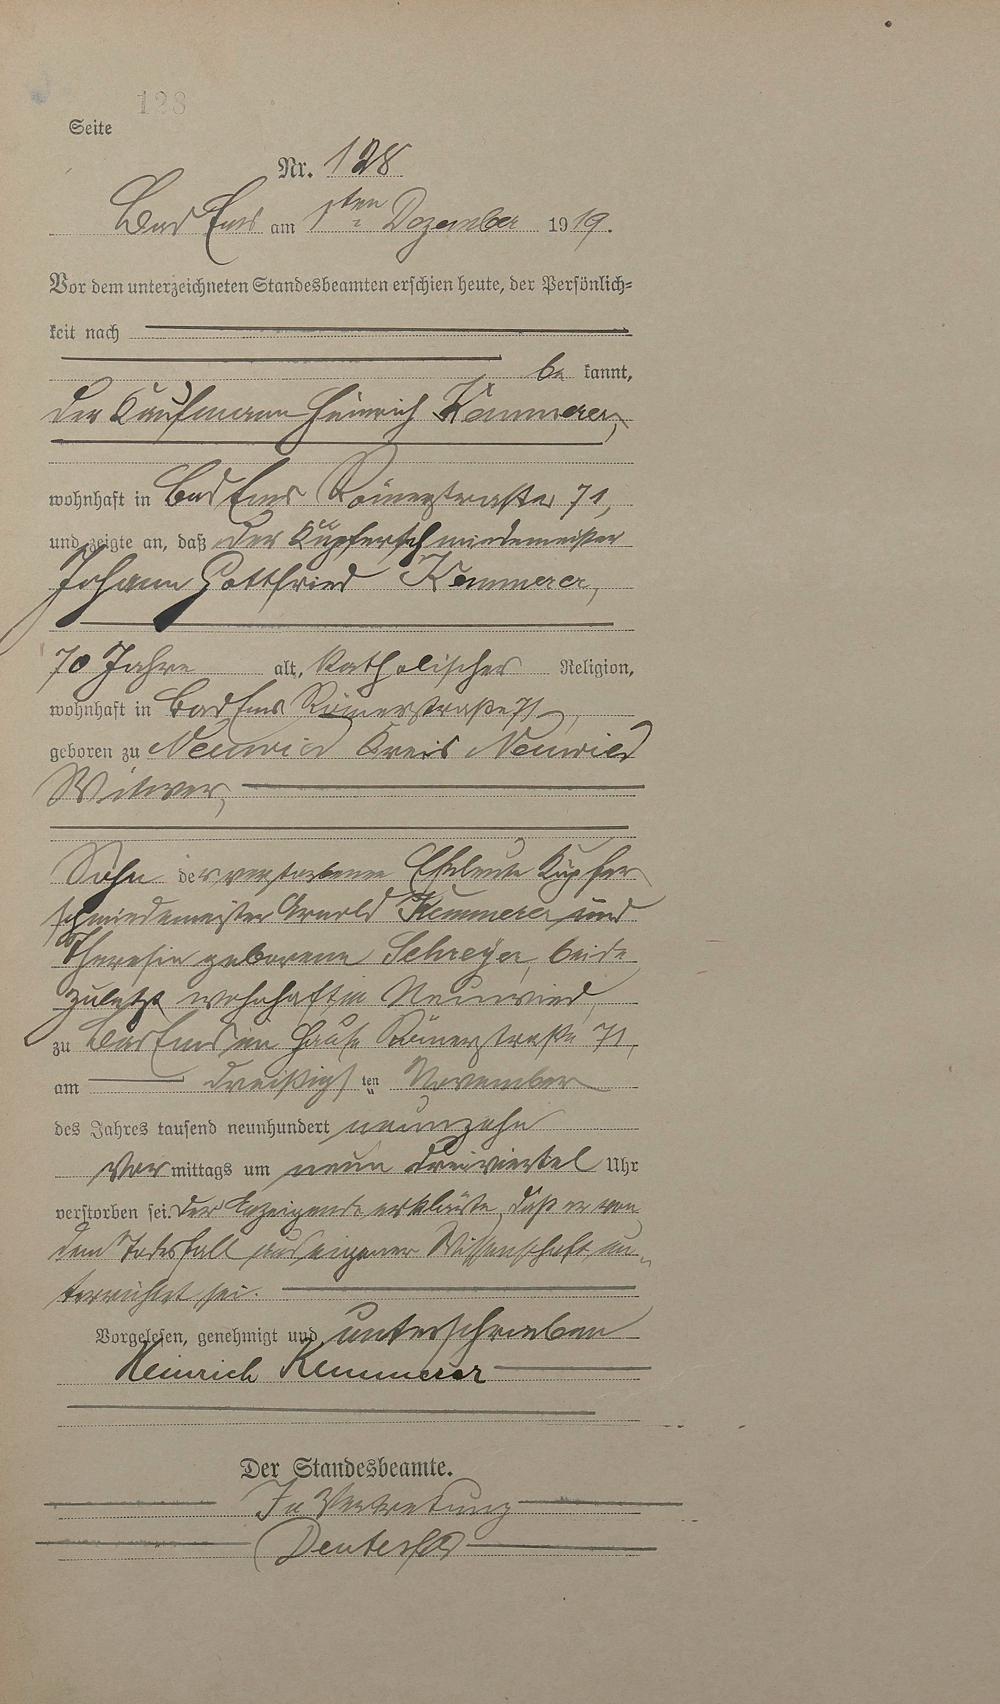 128
Seite
Nr. 128
Bad Ems am 1ten Dezember 1919.
Vor dem unterzeichneten Standesbeamten erschien heute, der Persönlich-
keit nach
be kannt,
der Kaufmann Heinrich Kemmerer,
wohnhaft in Bad Ems Römerstraße 71,
und zeigte an, daß der Kupferschmiedemeister
Johann Gottfried Kemmerer,
70 Jahre alt, katholischer Religion,
wohnhaft in Bad Ems Römerstraße 71,
geboren zu Neuwied Kreis Neuwied
Witwer,
Sohn der verstorbenen Eheleute Kupfer
schmiedemeister Arnold Kemmerer und
Theresia geborene Schreyer, beide
zuletzt wohnhaft in Neuwied,
zu Bad Ems im Hause Römerstraße 71,
am dreißigsten November
des Jahres tausend neunhundert neunzehn
Vormittags um neun dreiviertel Uhr
verstorben sei. Der Anzeigende erklärte, daß er von
dem Todesfall aus eigener Wissenschaft un-
terrichtet sei.
Vorgelesen, genehmigt und unterschrieben
Heinrich Kemmerer
Der Standesbeamte.
In Vertretung